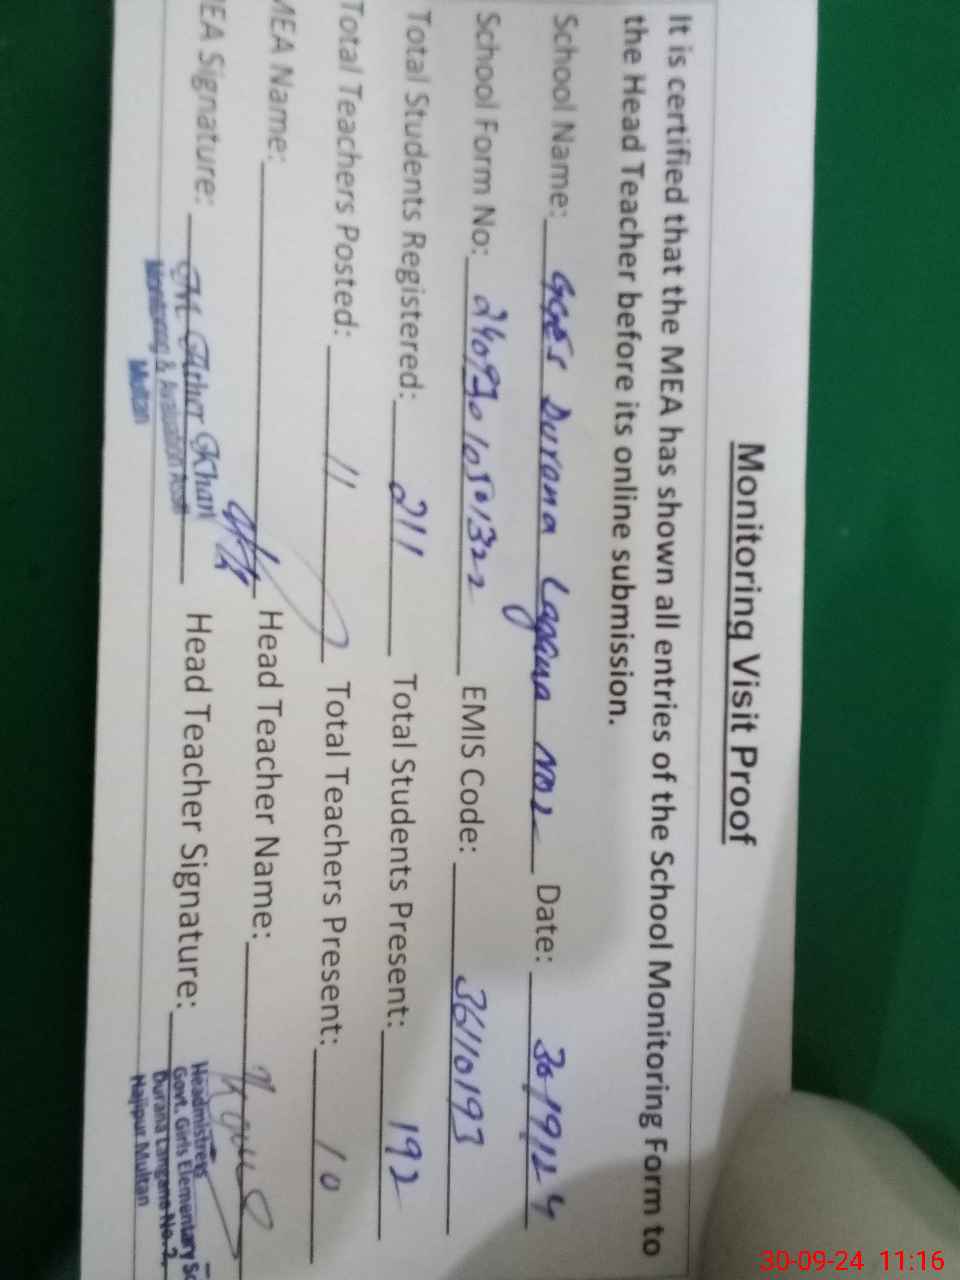 Monitoring Visit Proof
It is certified that the MEA has shown all entries of the School Monitoring Form to
the Head Teacher before its online submission.
School Name: GGES Durana Langana No 2 Date: 30/9/24
School Form No: EMIS Code: 36110193
Total Students Registered: 211 Total Students Present: 192
Total Teachers Posted: 11 Total Teachers Present: 10
MEA Name: Head Teacher Name:
EA Signature: Khan Head Teacher Signature:
Monitoring & Evaluation Asstt
Multan
Headmistress
Govt. Girls Elementary Sc
Durana Langana No. 2
Hajipur Multan
30-09-24 11:16